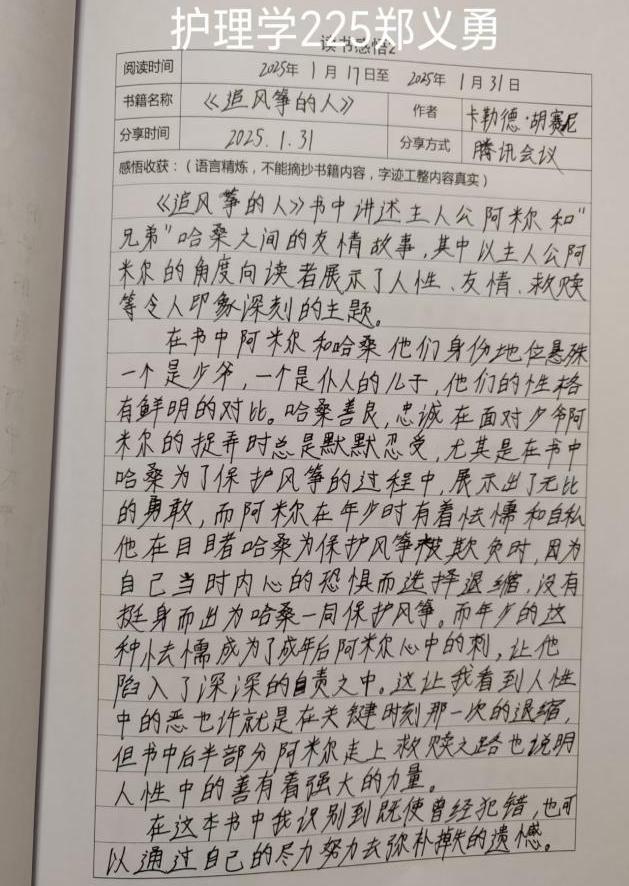 护理学225郑义勇
读书感悟2
阅读时间 2025年 1月 17日至 2025年 1月 31日
书籍名称 《追风筝的人》 作者 卡勒德·胡赛尼
分享时间 2025.1.31 分享方式 腾讯会议
感悟收获：（语言精炼，不能摘抄书籍内容，字迹工整内容真实）
《追风筝的人》书中讲述主人公阿米尔和“
兄弟”哈桑之间的友情故事，其中以主人公阿
米尔的角度向读者展示了人性、友情、救赎
等令人印象深刻的主题。
在书中阿米尔和哈桑他们身份地位悬殊
一个是少爷，一个是仆人的儿子，他们的性格
有鲜明的对比。哈桑善良，忠诚在面对少爷阿
米尔的捉弄时总是默默忍受，尤其是在书中
哈桑为了保护风筝的过程中，展示出了无比
的勇敢，而阿米尔在年少时有着怯懦和自私
他在目睹哈桑为保护风筝被欺负时，因为
自己当时内心的恐惧而选择退缩，没有
挺身而出为哈桑一同保护风筝。而年少的这
种怯懦成为了成年后阿米尔心中的刺，让他
陷入了深深的自责之中。这让我看到人性
中的恶也许就是在关键时刻那一次的退缩，
但书中后半部分阿米尔走上救赎之路也说明
人性中的善有着强大的力量。
在这本书中我识别到既使曾经犯错，也可
以通过自己的尽力努力去弥补掉失的遗憾。